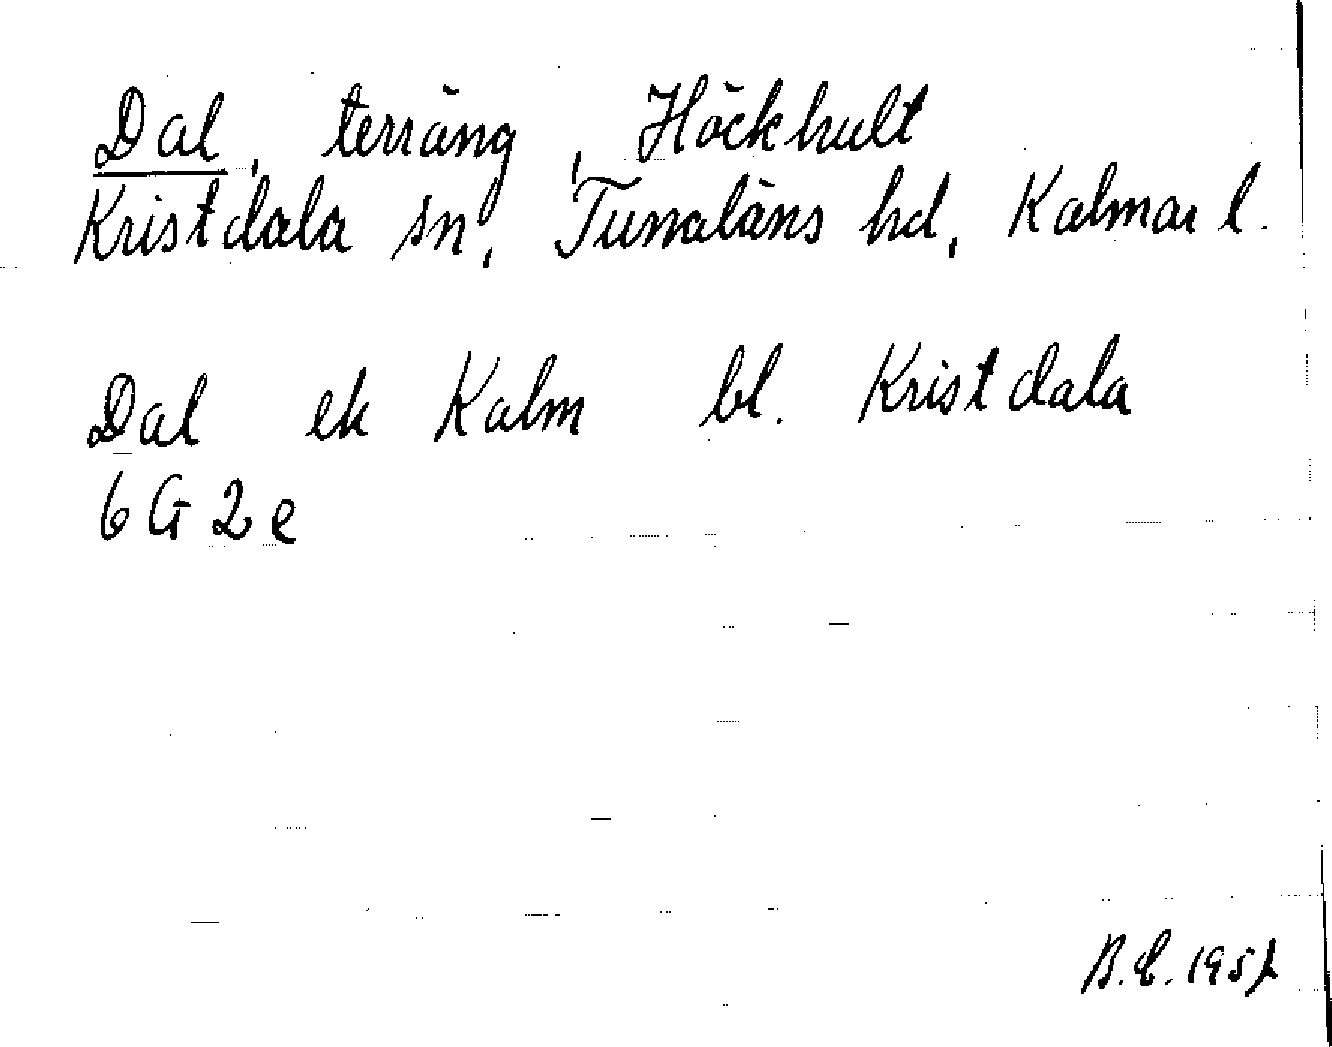 Dal, terräng, Höckhult
Kristdala sn, Tunaläns hd, Kalmar l.
Dal ek Kalm bl. Kristdala
6G2e